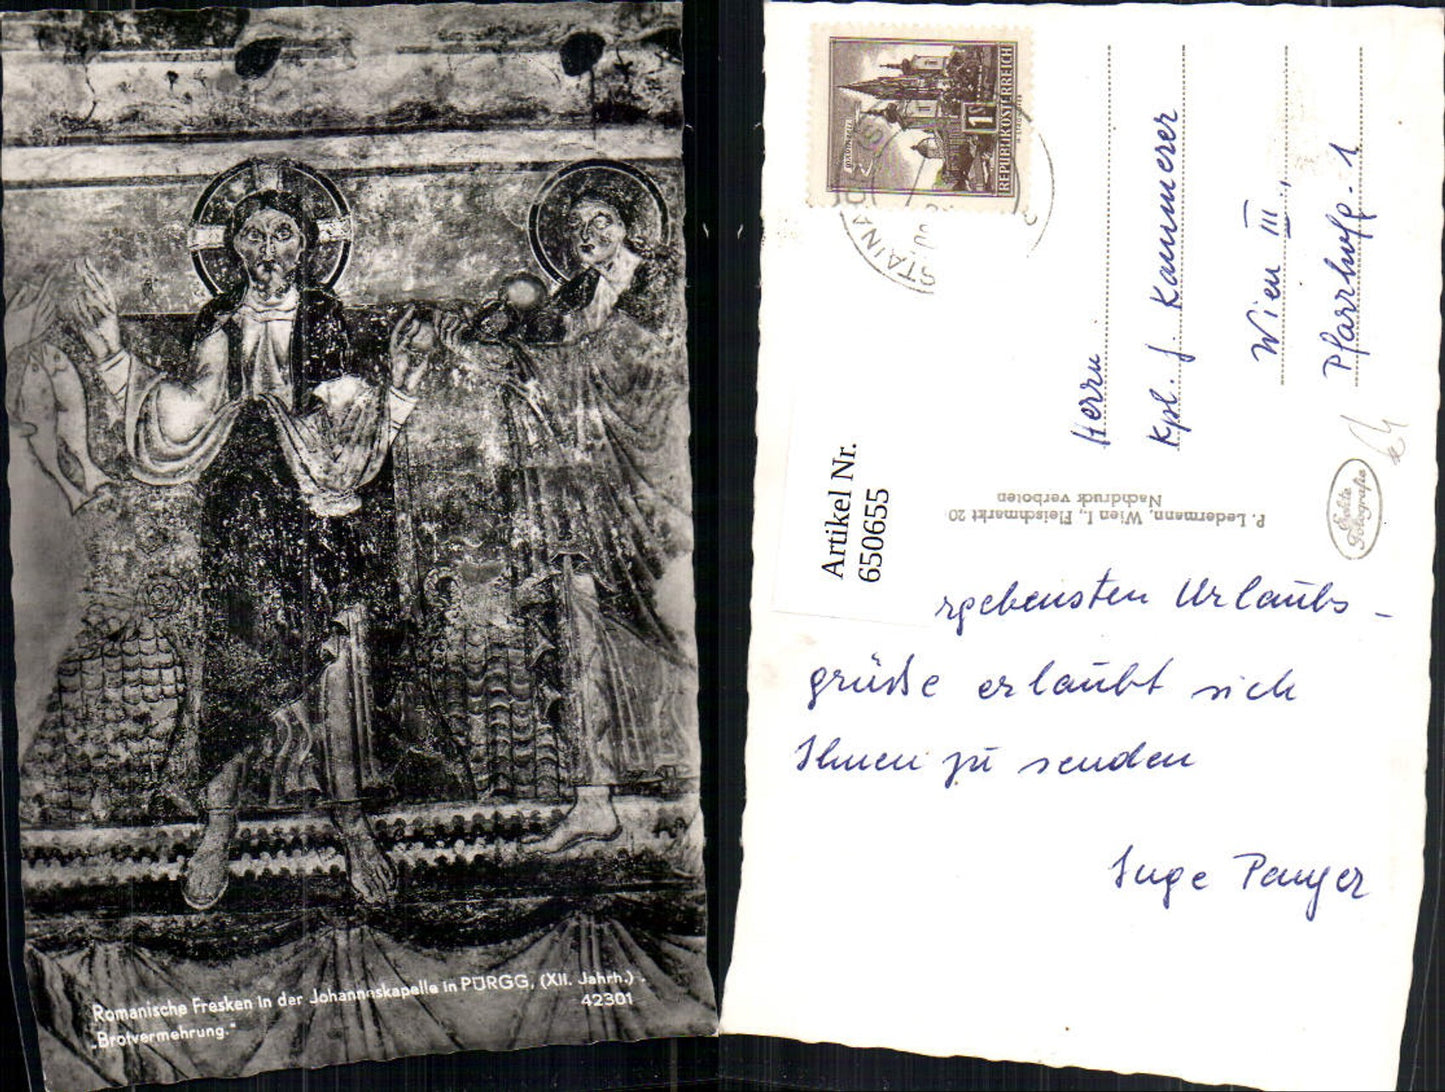 Romanische Fresken in der Johanneskapelle in PÜRGG, (XII. Jahrh.).
42301
„Brotvermehrung."
REPUBLIK ÖSTERREICH
1S
MARIAZELL
STAINACH
Herrn
Kpl. J. Kammerer
Wien III.,
Pfarrhofg. 1
P. Ledermann, Wien I., Fleischmarkt 20
Nachdruck verboten
Echte Fotografie
Artikel Nr.
650655
rgebensten Urlaubs-
grüße erlaubt sich
Ihnen zu senden
Inge